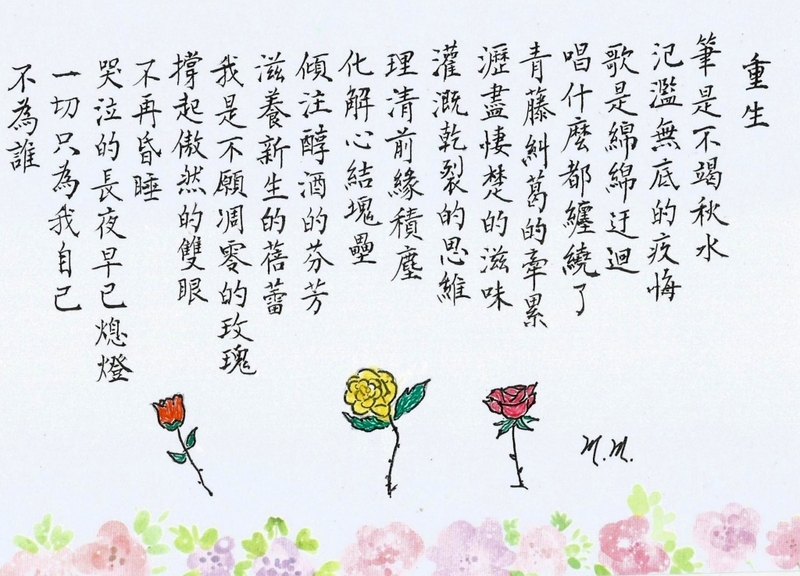 重生
筆是不竭秋水
氾濫無底的疚悔
歌是綿綿迂迴
唱什麼都纏繞了
青藤糾葛的牽累
瀝盡悽楚的滋味
灌溉乾裂的思維
理清前緣積塵
化解心結塊壘
傾注醇酒的芬芳
滋養新生的蓓蕾
我是不願凋零的玫瑰
撐起傲然的雙眼
不再昏睡
哭泣的長夜早已熄燈
一切只為我自己
不為誰
M.M.